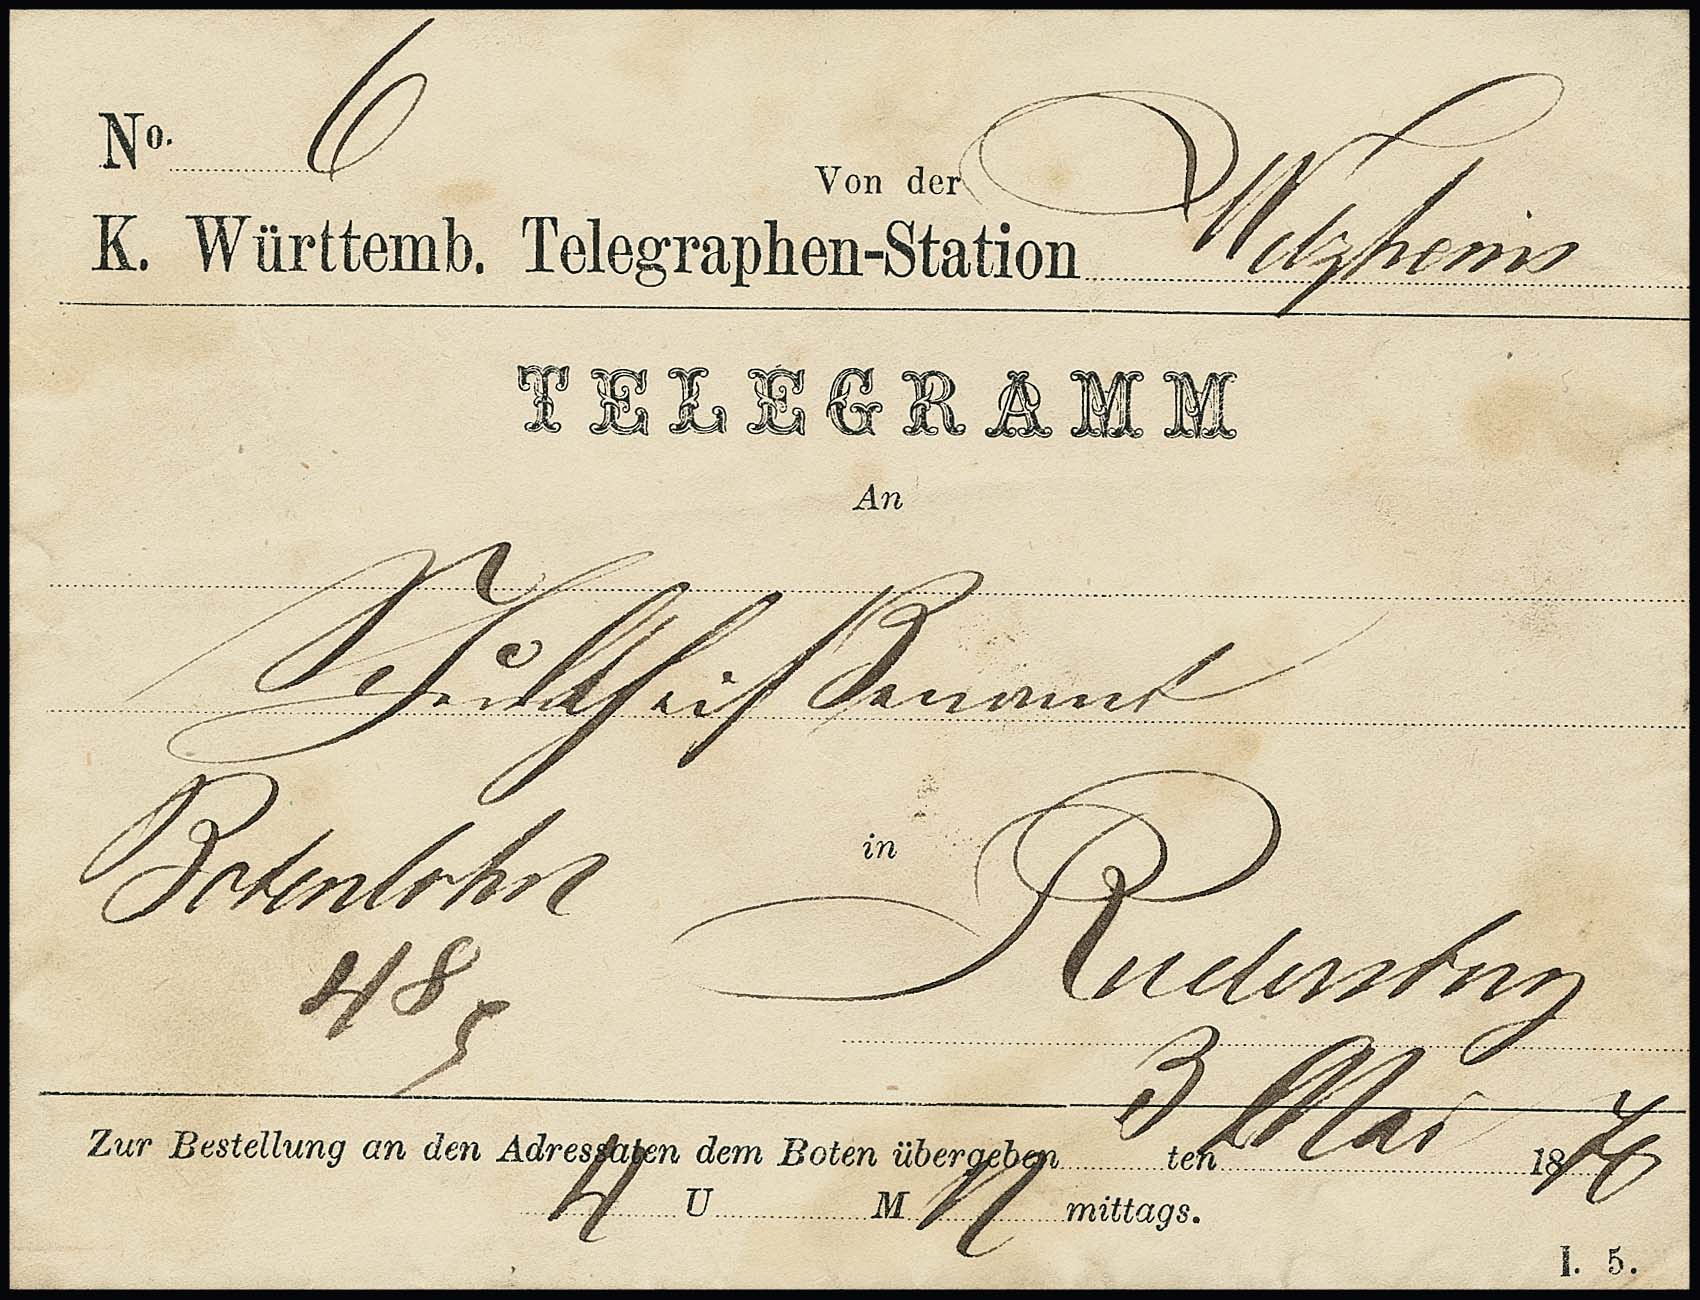 No. 6
Von der
K. Württemb. Telegraphen-Station Welzheim
TELEGRAMM
An
Schultheißenamt
Botenlohn
in Rudersberg
48
3 ten Mai 1876
Zur Bestellung an den Adressaten dem Boten übergeben
4 U M N mittags.
I. 5.